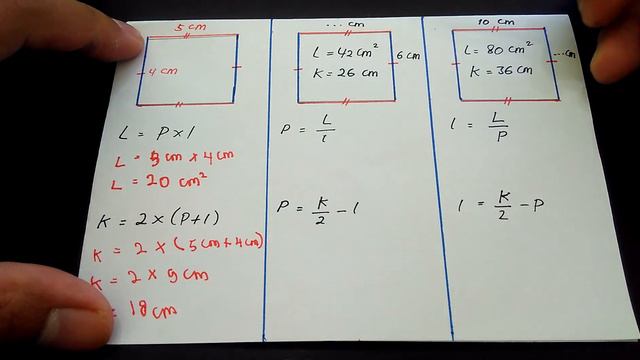 5 cm
4 cm
L = P x l
L = 5 cm x 4 cm
L = 20 cm²
K = 2 x (P + l)
K = 2 x (5 cm + 4 cm)
K = 2 x 9 cm
= 18 cm
... cm
L = 42 cm²
K = 26 cm
6 cm
P = L/l
P = K/2 - l
10 cm
L = 80 cm²
K = 36 cm
... cm
l = L/P
l = K/2 - P